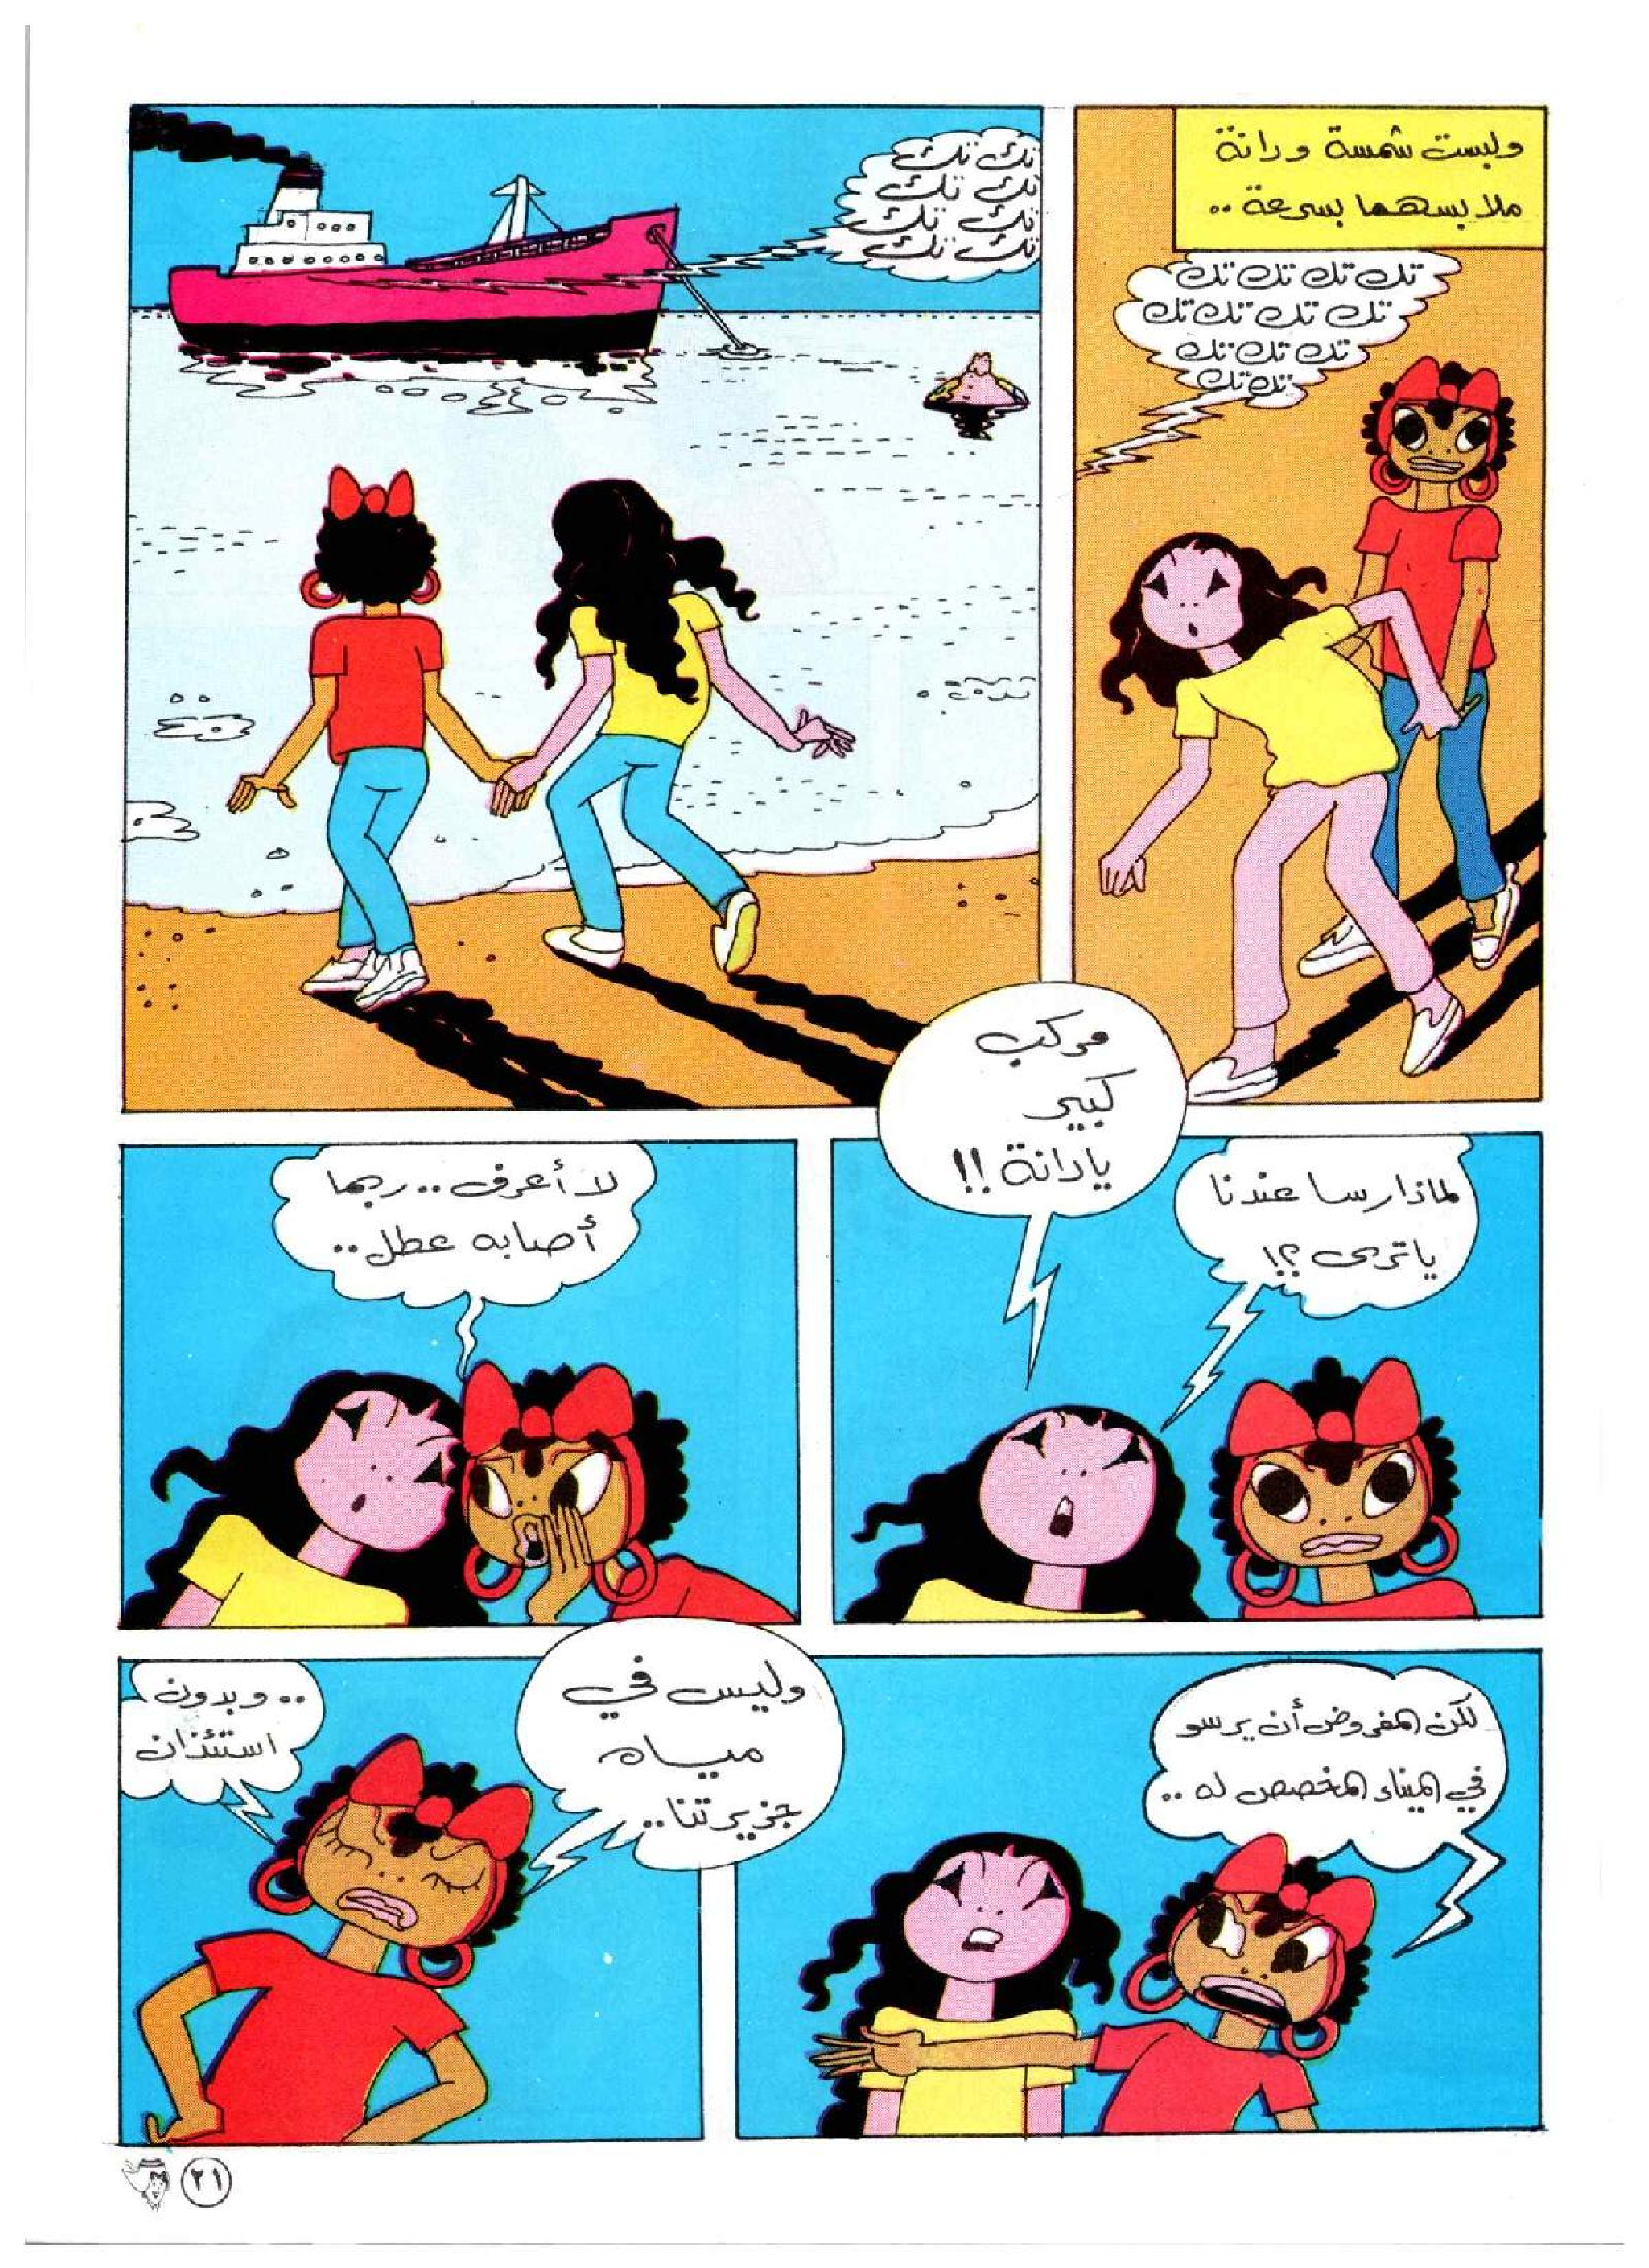 ولبست شمسة ودانة
ملابسهما بسرعة ..
تك تك تك تك
تك تك تك تك
تك تك تك
تك تك
تك تك
تك تك
تك تك
تك تك
مركب
كبير
يادانة !!
لماذا رسا عندنا
ياترى ؟!
لا أعرف .. ربما
أصابه عطل ..
لكن المفروض أن يرسو
في الميناء المخصص له ..
وليس في
مياه
جزيرتنا ..
.. وبدون
استئذان
٢١